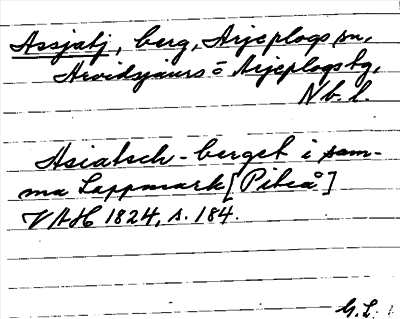 Assjatj, berg, Arjeplogs sn,
Arvidsjaurs o Arjeplogs tg,
Nb. l.
Asiatsch-berget i sam-
ma Lappmark [Piteå]
VAH 1824, s. 184.
G. L.